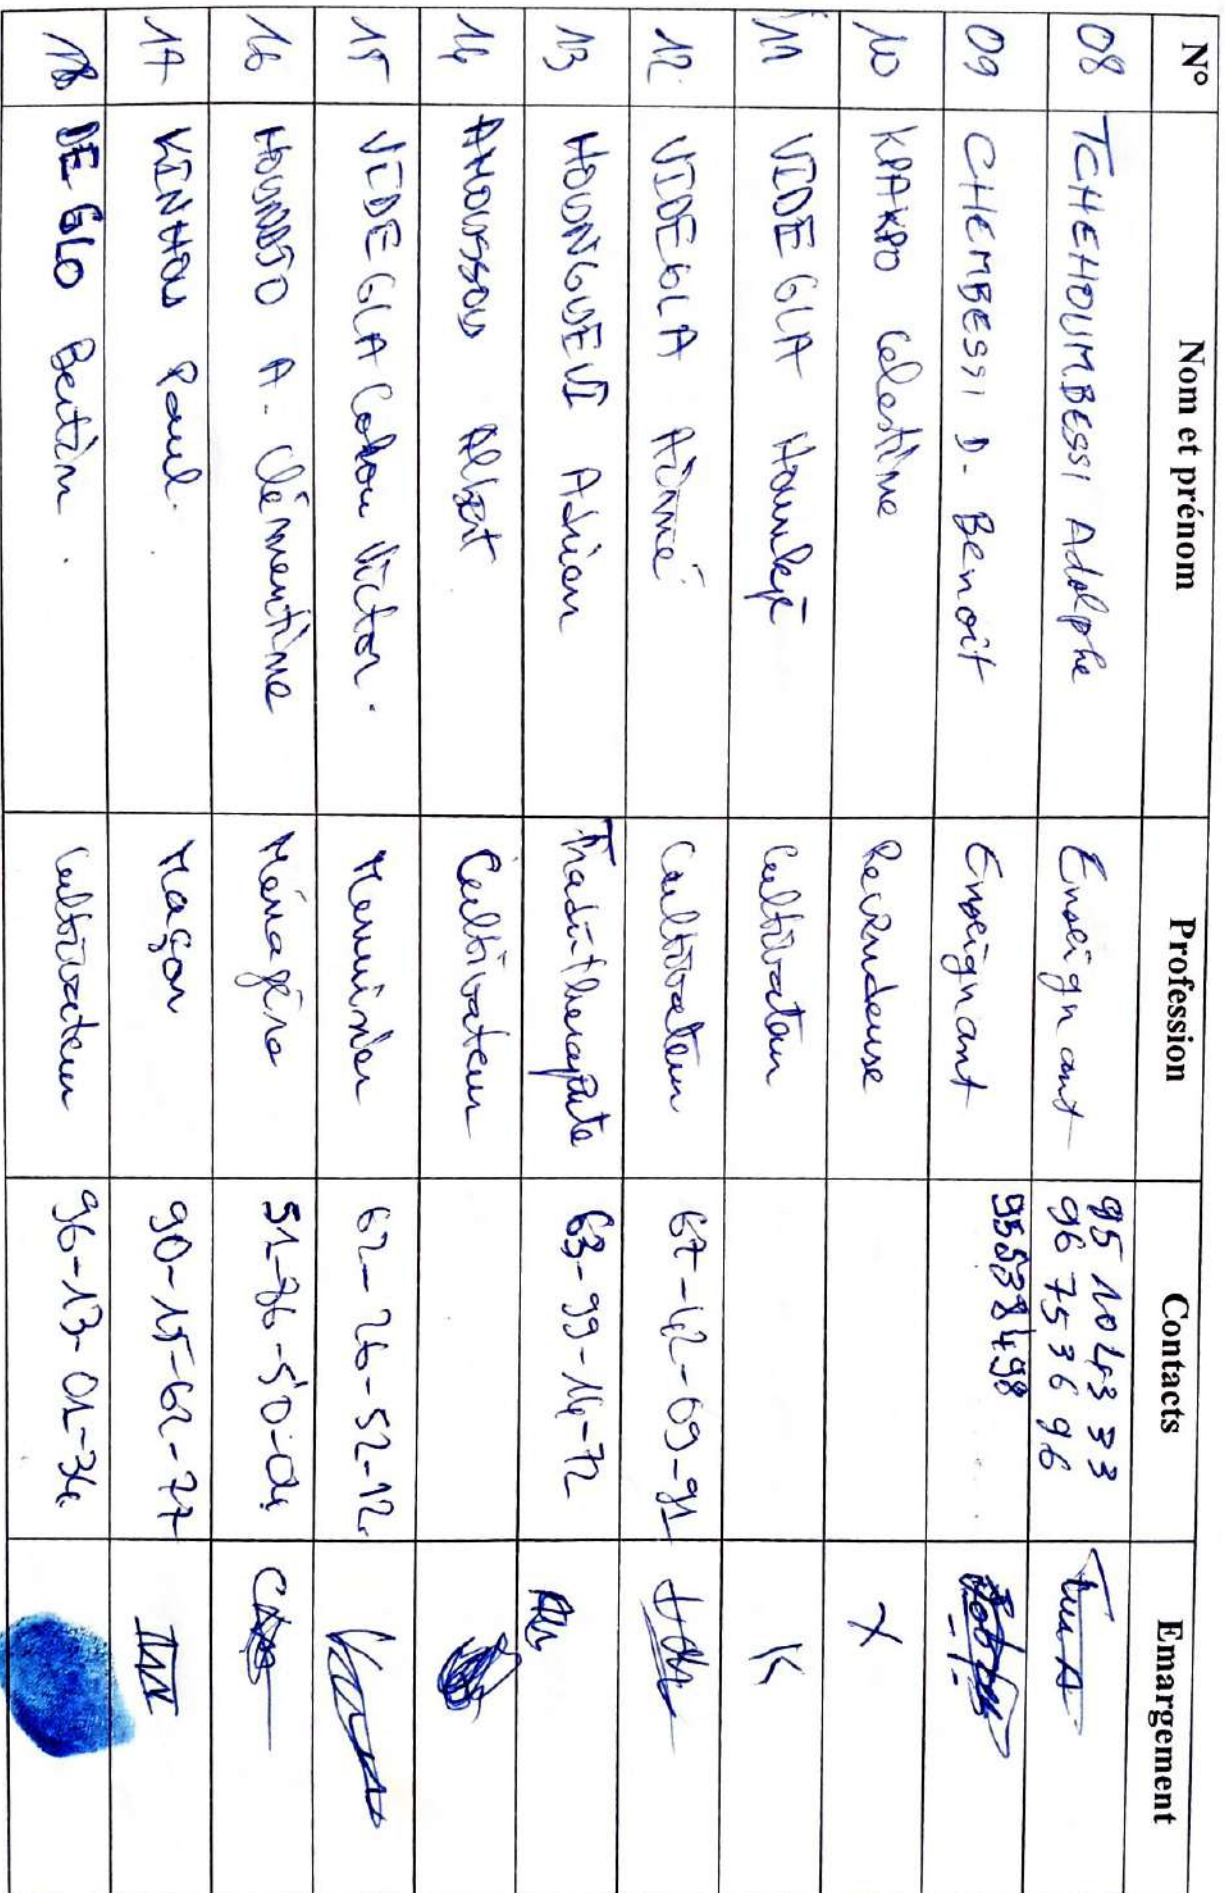 N° Nom et prénom Profession Contacts Emargement
08 TCHEHOUMBESSI Adolphe Enseignant 95 10 43 33
96 75 36 96
09 CHEMBESSI D. Benoît Enseignant 95538498
10 KPAKPO Celestine Revendeuse X
11 VIDEGLA Cultivateur
12 VIDEGLA Aimé Cultivateur 67-42-69-91
13 HOUNGUEVI Adrien Tradi-therapeute 63-99-14-72
14 AHOUSSOU Albert Cultivateur
15 VIDEGLA Victor. Menuisier 62-26-52-12
16 A. Clémentine Ménagère 51-76-50-04
17 KINHOU Paul. Maçon 90-15-62-77
18 DEGLO Bertin. Cultivateur 96-13-01-34